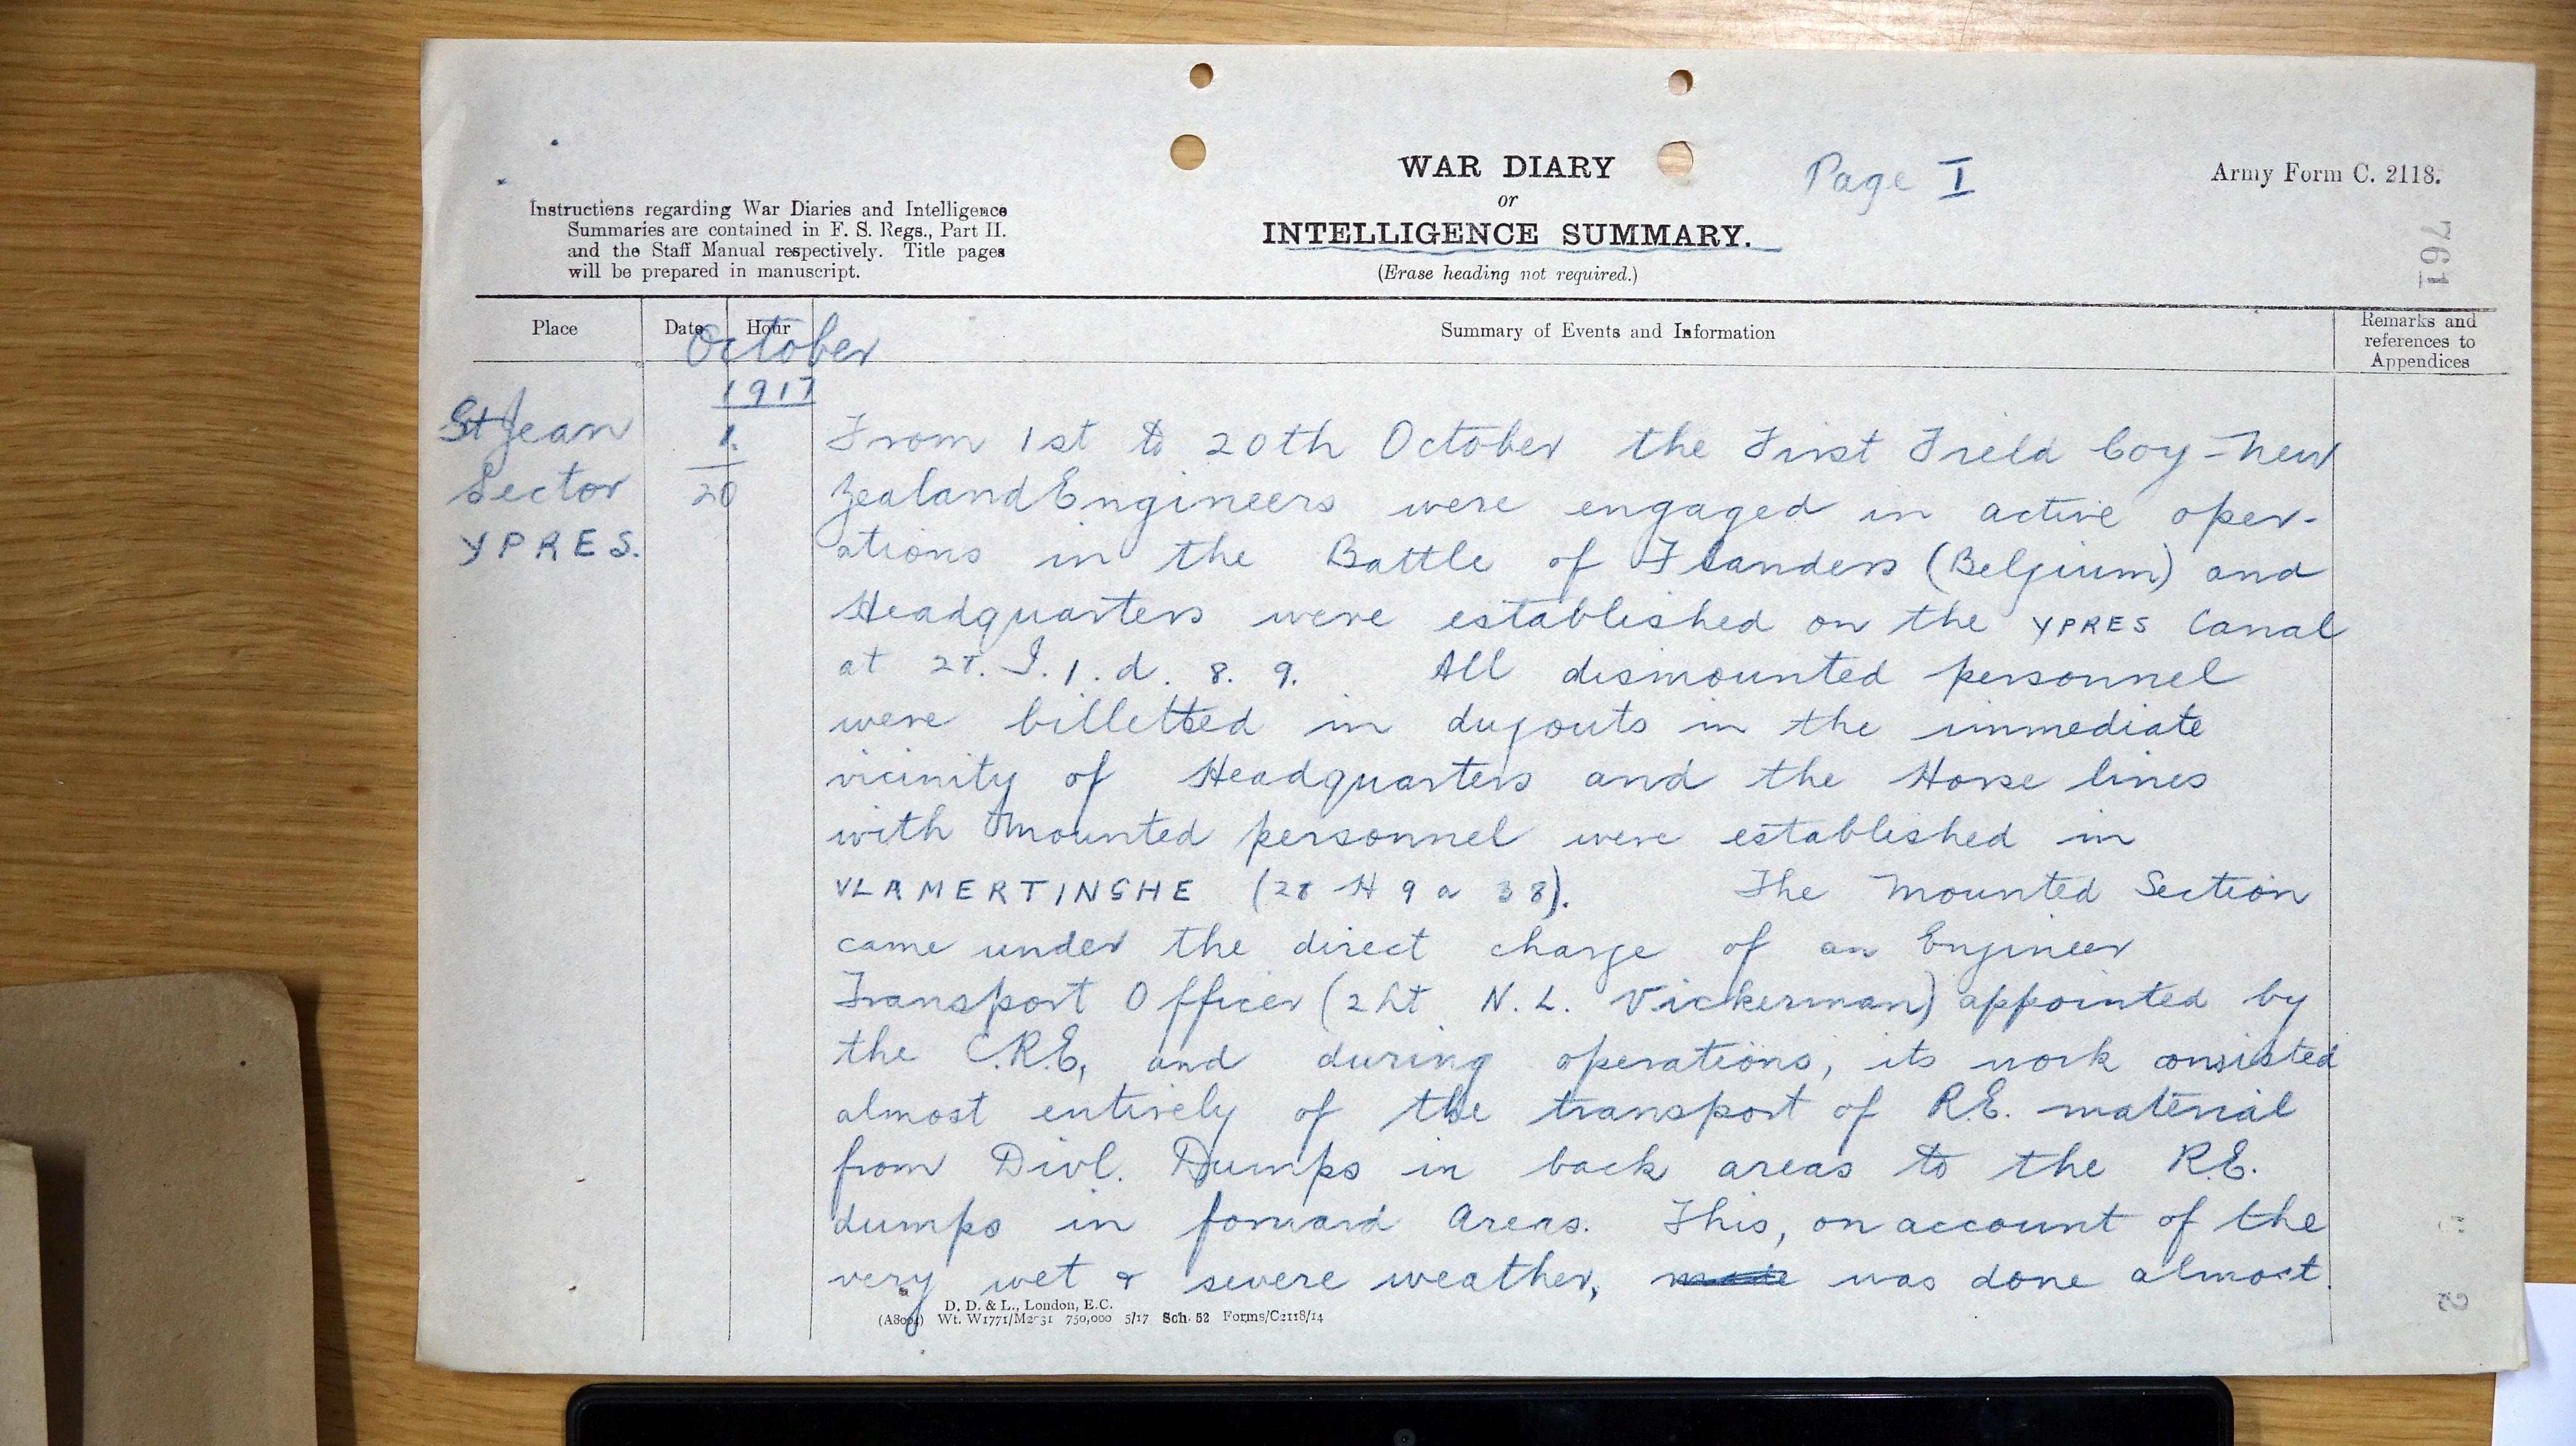 WAR DIARY
or
INTELLIGENCE SUMMARY.
(Erase heading not required.)
Page I
Army Form C. 2118.
761
Instructions regarding War Diaries and Intelligence
Summaries are contained in F. S. Regs., Part II.
and the Staff Manual respectively. Title pages
will be prepared in manuscript.
Place
Date
Hour
Summary of Events and Information
Remarks and
references to
Appendices
October
1917
St Jean
Sector
YPRES.
1.
20
From 1st to 20th October the First Field Coy - New
Zealand Engineers were engaged in active oper-
ations in the Battle of Flanders (Belgium) and
Headquarters were established on the YPRES Canal
at 28. I. 1. d. 8. 9. All dismounted personnel
were billetted in dugouts in the immediate
vicinity of Headquarters and the Horse lines
with mounted personnel were established in
VLAMERTINGHE (28 H 9 a 38). The Mounted Section
came under the direct charge of an Engineer
Transport Officer (2Lt N. L. Vickerman) appointed by
the C.R.E, and during operations, its work consisted
almost entirely of the transport of R.E. material
from Divl. Dumps in back areas to the R.E.
dumps in forward Areas. This, on account of the
very wet & severe weather, made was done almost
D. D. & L., London, E.C.
(A8004) Wt. W1771/M2031 750,000 5/17 Sch. 52 Forms/C2118/14